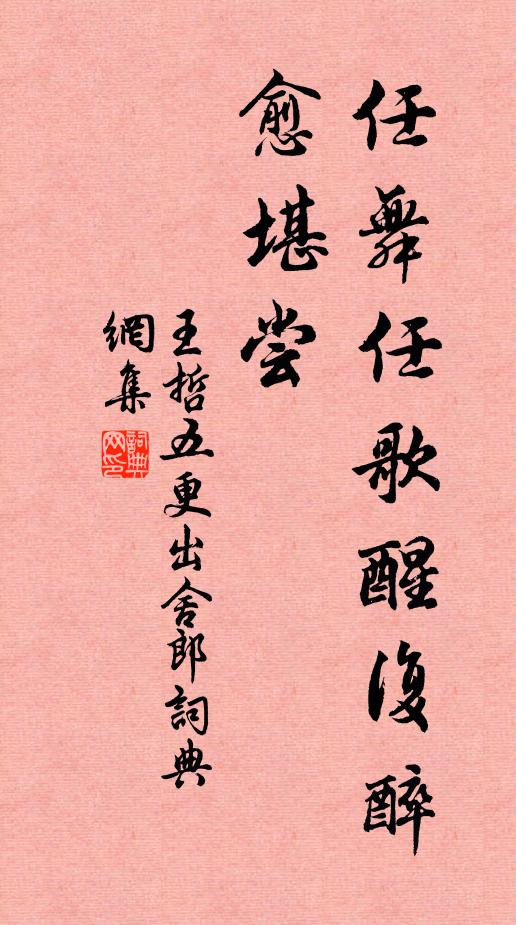 任舞任歌醒復醉
愈堪尝
王哲五更出舍郎詞典
網集
詞典
网印